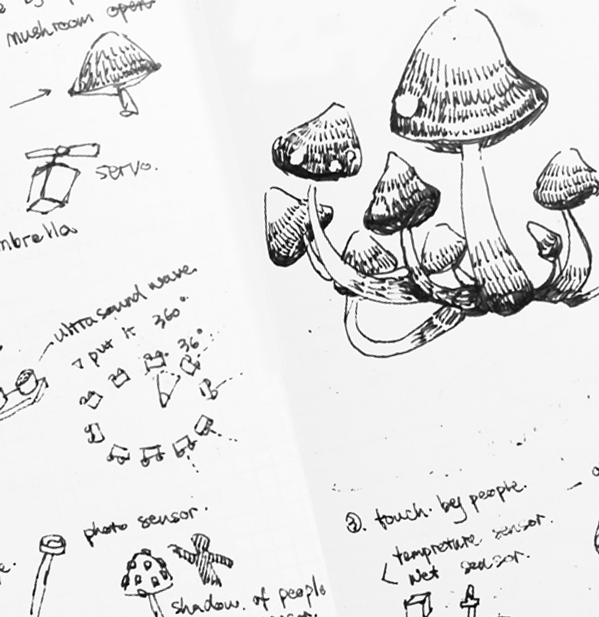 mushroom open
servo.
mbrella
ultrasound wave.
put it 360°
36°
photo sensor.
shadow. of people
②. touch. by people.
tempreture sensor.
wet sensor.